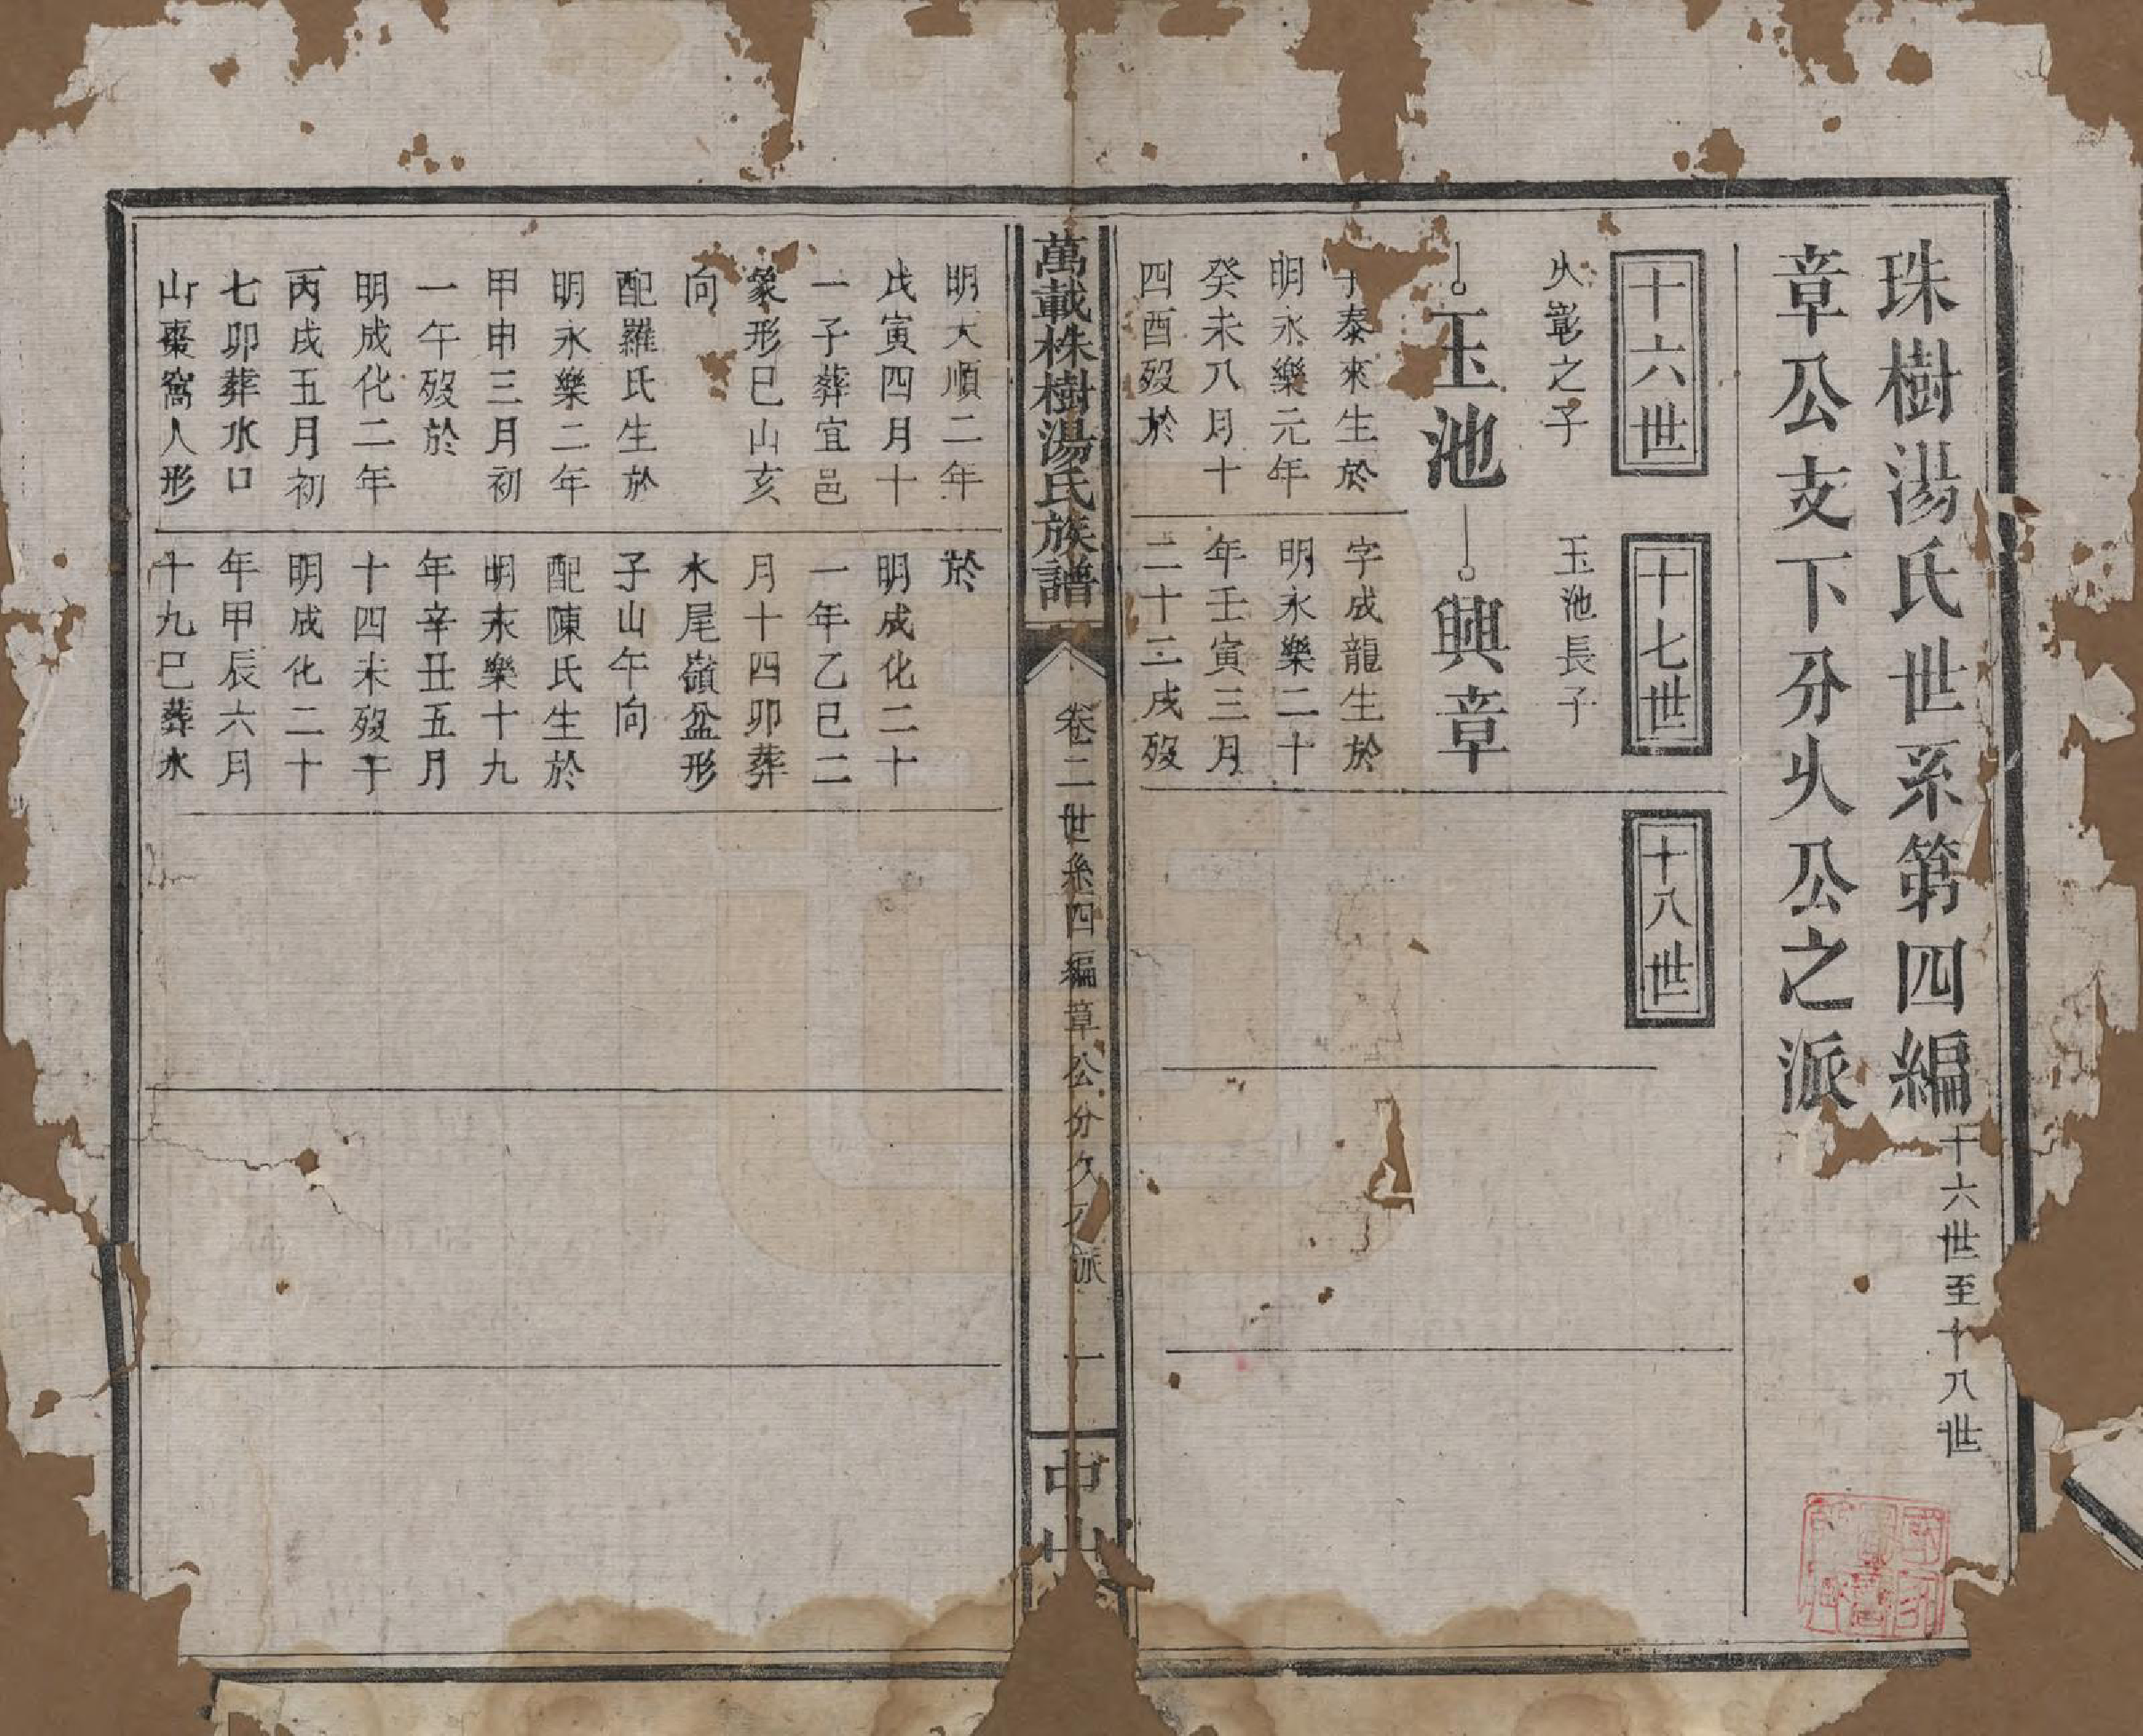 珠樹湯氏世系第四編
十六世至十八世
章公支下分火公之派
十六世
十七世
十八世
火彰之子
玉池長子
玉池
興章
泰來生於
明永樂元年
癸未八月十
四酉歿於
字成龍生於
明永樂二十
年壬寅三月
二十三戌歿
萬載株樹湯氏族譜
卷二世系四編章公分久 派
一
中山
明天順二年
戊寅四月十
一子葬宜邑
象形巳山亥
向
配羅氏生於
明永樂二年
甲申三月初
一午歿於
明成化二年
丙戌五月初
七卯葬水口
山棗窩人形
於
明成化二十
一年乙巳二
月十四卯葬
水尾嶺盆形
子山午向
配陳氏生於
明永樂十九
年辛丑五月
十四未歿于
明成化二十
年甲辰六月
十九巳葬水